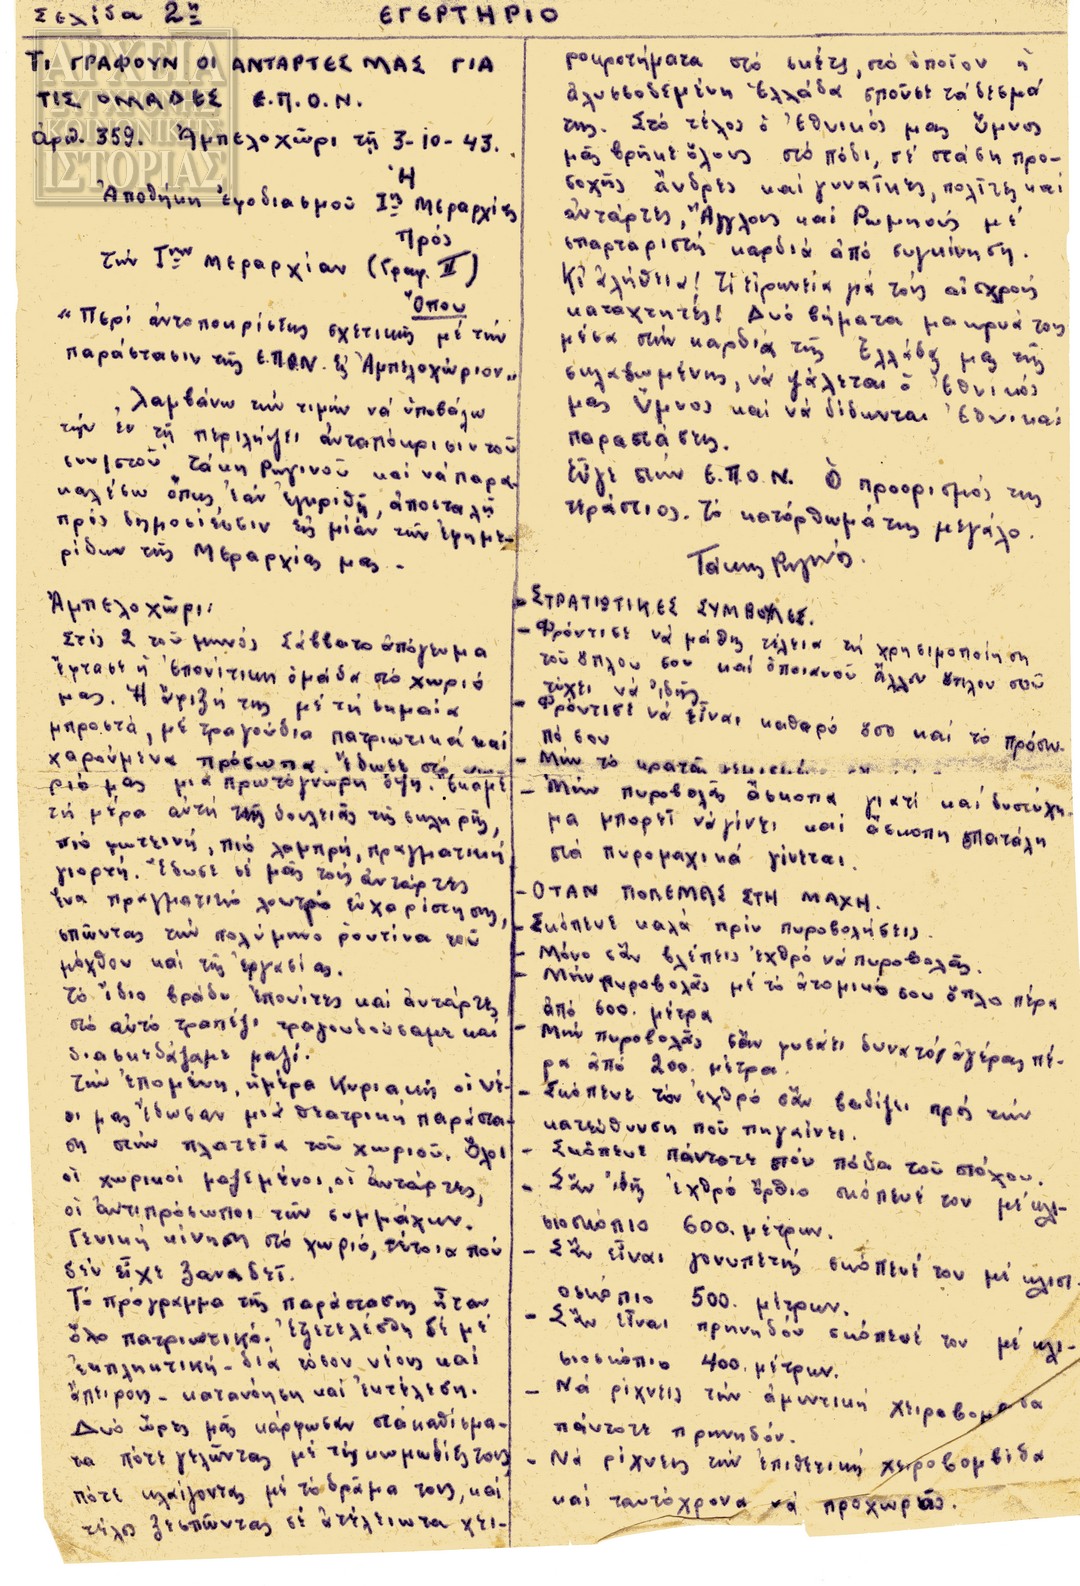 Σελίδα 2η
ΕΓΕΡΤΗΡΙΟ
ΑΡΧΕΙΑ
ΣΥΓΧΡΟΝΗΣ
ΚΟΙΝΩΝΙΚΗΣ
ΙΣΤΟΡΙΑΣ
ΤΙ ΓΡΑΦΟΥΝ ΟΙ ΑΝΤΑΡΤΕΣ ΜΑΣ ΓΙΑ
ΤΙΣ ΟΜΑΔΕΣ Ε.Π.Ο.Ν.
ἀρθ. 359. Ἀμπελοχῶρι τῇ 3-10-43.
Ἡ
Ἀποθήκη ἐφοδιασμοῦ Iης Μεραρχίας
Πρός
τήν Iην Μεραρχίαν (Γραφ. II)
Ὅπου
"Περί ἀνταποκρίσεως σχετικῆς μέ τήν
παράστασιν τῆς Ε.ΠΟΝ. εἰς Ἀμπελοχώριον"
Λαμβάνω τήν τιμήν νά ὑποβάλω
τήν ἐν τῇ περιλήψει ἀνταπόκρισιν τοῦ
συν/στοῦ Τάκη Ρηγινοῦ καί νά παρα-
καλέσω ὅπως ἐάν ἐγκριθῇ, ἀποσταλῇ
πρός δημοσίευσιν εἰς μίαν τῶν ἐφημε-
ρίδων τῆς Μεραρχίας μας -
Ἀμπελοχῶρι:
Στίς 2 τοῦ μηνός Σάββατο ἀπόγευμα
ἔφτασε ἡ ἐπονίτικη ὁμάδα στό χωριό
μας. Ἡ ἄφιξή της μέ τή σημαία
μπροστά, μέ τραγούδια πατριωτικά καί
χαρούμενα πρόσωπα. Ἔδωσε στό χω-
ριό μας μιά πρωτόγνωρη ὄψη. Ἔκαμε
τή μέρα αὐτή τῆς δουλειᾶς τῆς σκληρῆς,
πιό φωτεινή, πιό λαμπρή, πραγματική
γιορτή. Ἔδωσε σέ μᾶς τούς ἀντάρτες
ἕνα πραγματικό λουτρό εὐχαρίστησης,
σπῶντας τήν πολύμηνο ρουτίνα τοῦ
μόχθου καί τῆς ἐργασίας.
Τό ἴδιο βράδυ ἐπονίτες καί ἀντάρτες
στό αὐτό τραπέζι τραγουδούσαμε καί
διασκεδάζαμε μαζί.
Τήν ἑπομένη, ἡμέρα Κυριακή οἱ νέ-
οι μας ἔδωσαν μιά θεατρική παράστα-
ση στήν πλατεῖα τοῦ χωριοῦ. Ὅλοι
οἱ χωρικοί μαζεμένοι, οἱ ἀντάρτες,
οἱ ἀντιπρόσωποι τῶν συμμάχων.
Γενική κίνηση στό χωριό, τέτοια πού
δέν εἶχε ξαναδεῖ.
Τό πρόγραμμα τῆς παράστασης ἦταν
ὅλο πατριωτικό. Ἐξετελέσθη δέ μέ
ἐκπληκτική - διά τόσον νέους καί
ἄπειρους - κατανόηση καί ἐκτέλεση.
Δυό ὧρες μᾶς κάρφωσαν στά καθίσμα-
τα πότε γελῶντας μέ τίς κωμωδίες τους,
πότε κλαίγοντας μέ τό δράμα τους, καί
τέλος ξεσπῶντας σέ ἀτέλειωτα χει-
ροκροτήματα στό σκέτς, στό ὁποῖον ἡ
ἁλυσσοδεμένη Ἑλλάδα σποῦσε τά δεσμά
της. Στό τέλος ὁ Ἐθνικός μας Ὕμνος
μᾶς βρῆκε ὅλους στό πόδι, σέ στάση προ-
σοχῆς ἄνδρες καί γυναῖκες, πολῖτες καί
ἀντάρτες, Ἄγγλους καί Ρωμηούς μέ
σπαρταριστή καρδιά ἀπό συγκίνηση.
Κι' ἀλήθεια! Τί εἰρωνεία γιά τούς αἰσχρούς
καταχτητές! Δυό βήματα μακρυά τους
μέσα στήν καρδιά τῆς Ἑλλάδας μας τῆς
σκλαβωμένης, νά ψάλεται ὁ Ἐθνικός
μας Ὕμνος καί νά δίδωνται Ἐθνικαί
παραστάσεις.
Εὖγε στήν Ε.Π.Ο.Ν. Ὁ προορισμός της
τεράστιος. Τό κατόρθωμά της μεγάλο.
Τάκης Ρηγινός.
- ΣΤΡΑΤΙΩΤΙΚΕΣ ΣΥΜΒΟΥΛΕΣ.
- Φρόντισε νά μάθῃς τέλεια τή χρησιμοποίηση
τοῦ ὅπλου σου καί ὁποιανοῦ ἄλλου ὅπλου σοῦ
τύχει νά ἰδῆς
- Φρόντισε νά εἶναι καθαρό ὅσο καί τό πρόσω-
πό σου
- Μήν τό κρατᾶς
- Μήν πυροβολῆς ἄσκοπα γιατί καί δυστύχη-
μα μπορεῖ νά γίνει καί ἄσκοπη σπατάλη
στά πυρομαχικά γίνεται.
- ΟΤΑΝ ΠΟΛΕΜΑΣ ΣΤΗ ΜΑΧΗ.
- Σκόπευε καλά πρίν πυροβολήσεις.
- Μόνο σάν βλέπεις ἐχθρό νά πυροβολᾶς.
- Μήν πυροβολᾶς μέ τό ἀτομικό σου ὅπλο πέρα
ἀπό 600. μέτρα
- Μήν πυροβολᾶς σάν φυσάει δυνατός ἀγέρας πέ-
ρα ἀπό 200. μέτρα.
- Σκόπευε τόν ἐχθρό σάν βαδίζει πρός τήν
κατεύθυνση πού πηγαίνει.
- Σκόπευε πάντοτε στόν πόδα τοῦ στόχου.
- Σάν ἰδῆς ἐχθρό ὄρθιο σκόπευέ τον μέ κλι-
σιοσκόπιο 600. μέτρων.
- Σάν εἶναι γονυπετής σκόπευέ τον μέ κλισι-
οσκόπιο 500. μέτρων.
- Σάν εἶναι πρηνηδόν σκόπευέ τον μέ κλι-
σιοσκόπιο 400. μέτρων.
- Νά ρίχνεις τήν ἀμυντική χειροβομβίδα
πάντοτε πρηνηδόν.
- Νά ρίχνεις τήν ἐπιθετική χειροβομβίδα
καί ταυτόχρονα νά προχωρᾶς.